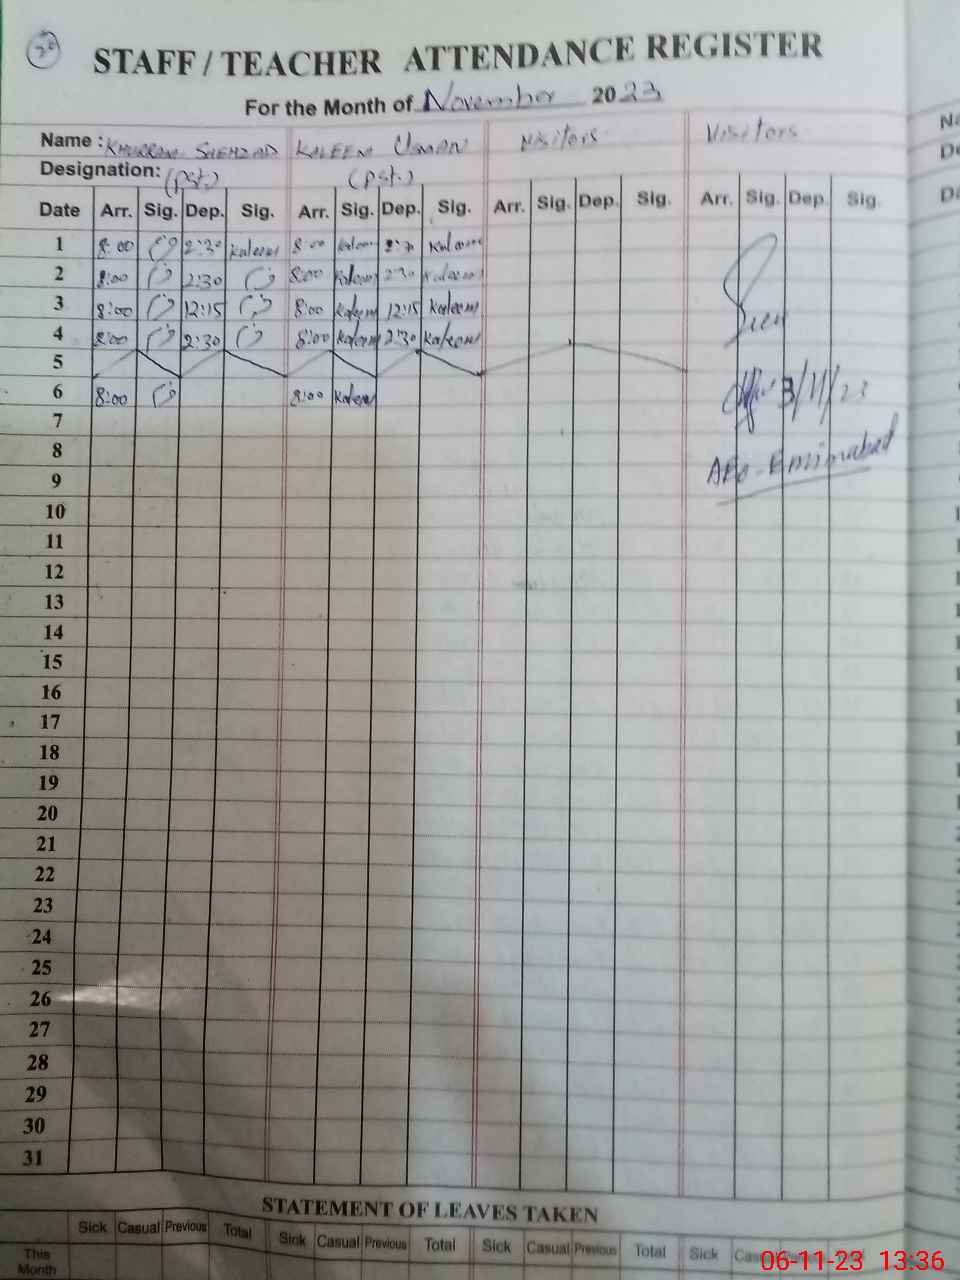 20
STAFF / TEACHER ATTENDANCE REGISTER
For the Month of November 2023
Name : KHURRAM SHEHZAD KALEEM USMAN Visitors Visitors
Designation: (PST.) (PST.)
Date Arr. Sig. Dep. Sig. Arr. Sig. Dep. Sig. Arr. Sig. Dep. Sig. Arr. Sig. Dep. Sig.
1 8:00 2:30 Kaleem 8:00 Kaleem 2:30 Kaleem
2 8:00 2:30 8:00 Kaleem 2:30 Kaleem
3 8:00 12:15 8:00 Kaleem 12:15 Kaleem
4 8:00 2:30 8:00 Kaleem 2:30 Kaleem
5
6 8:00 8:00 Kaleem 3/11/23
7
8 AEO-Eminabad
9
10
11
12
13
14
15
16
17
18
19
20
21
22
23
24
25
26
27
28
29
30
31
STATEMENT OF LEAVES TAKEN
Sick Casual Previous Total Sick Casual Previous Total Sick Casual Previous Total Sick
This
Month
06-11-23 13:36